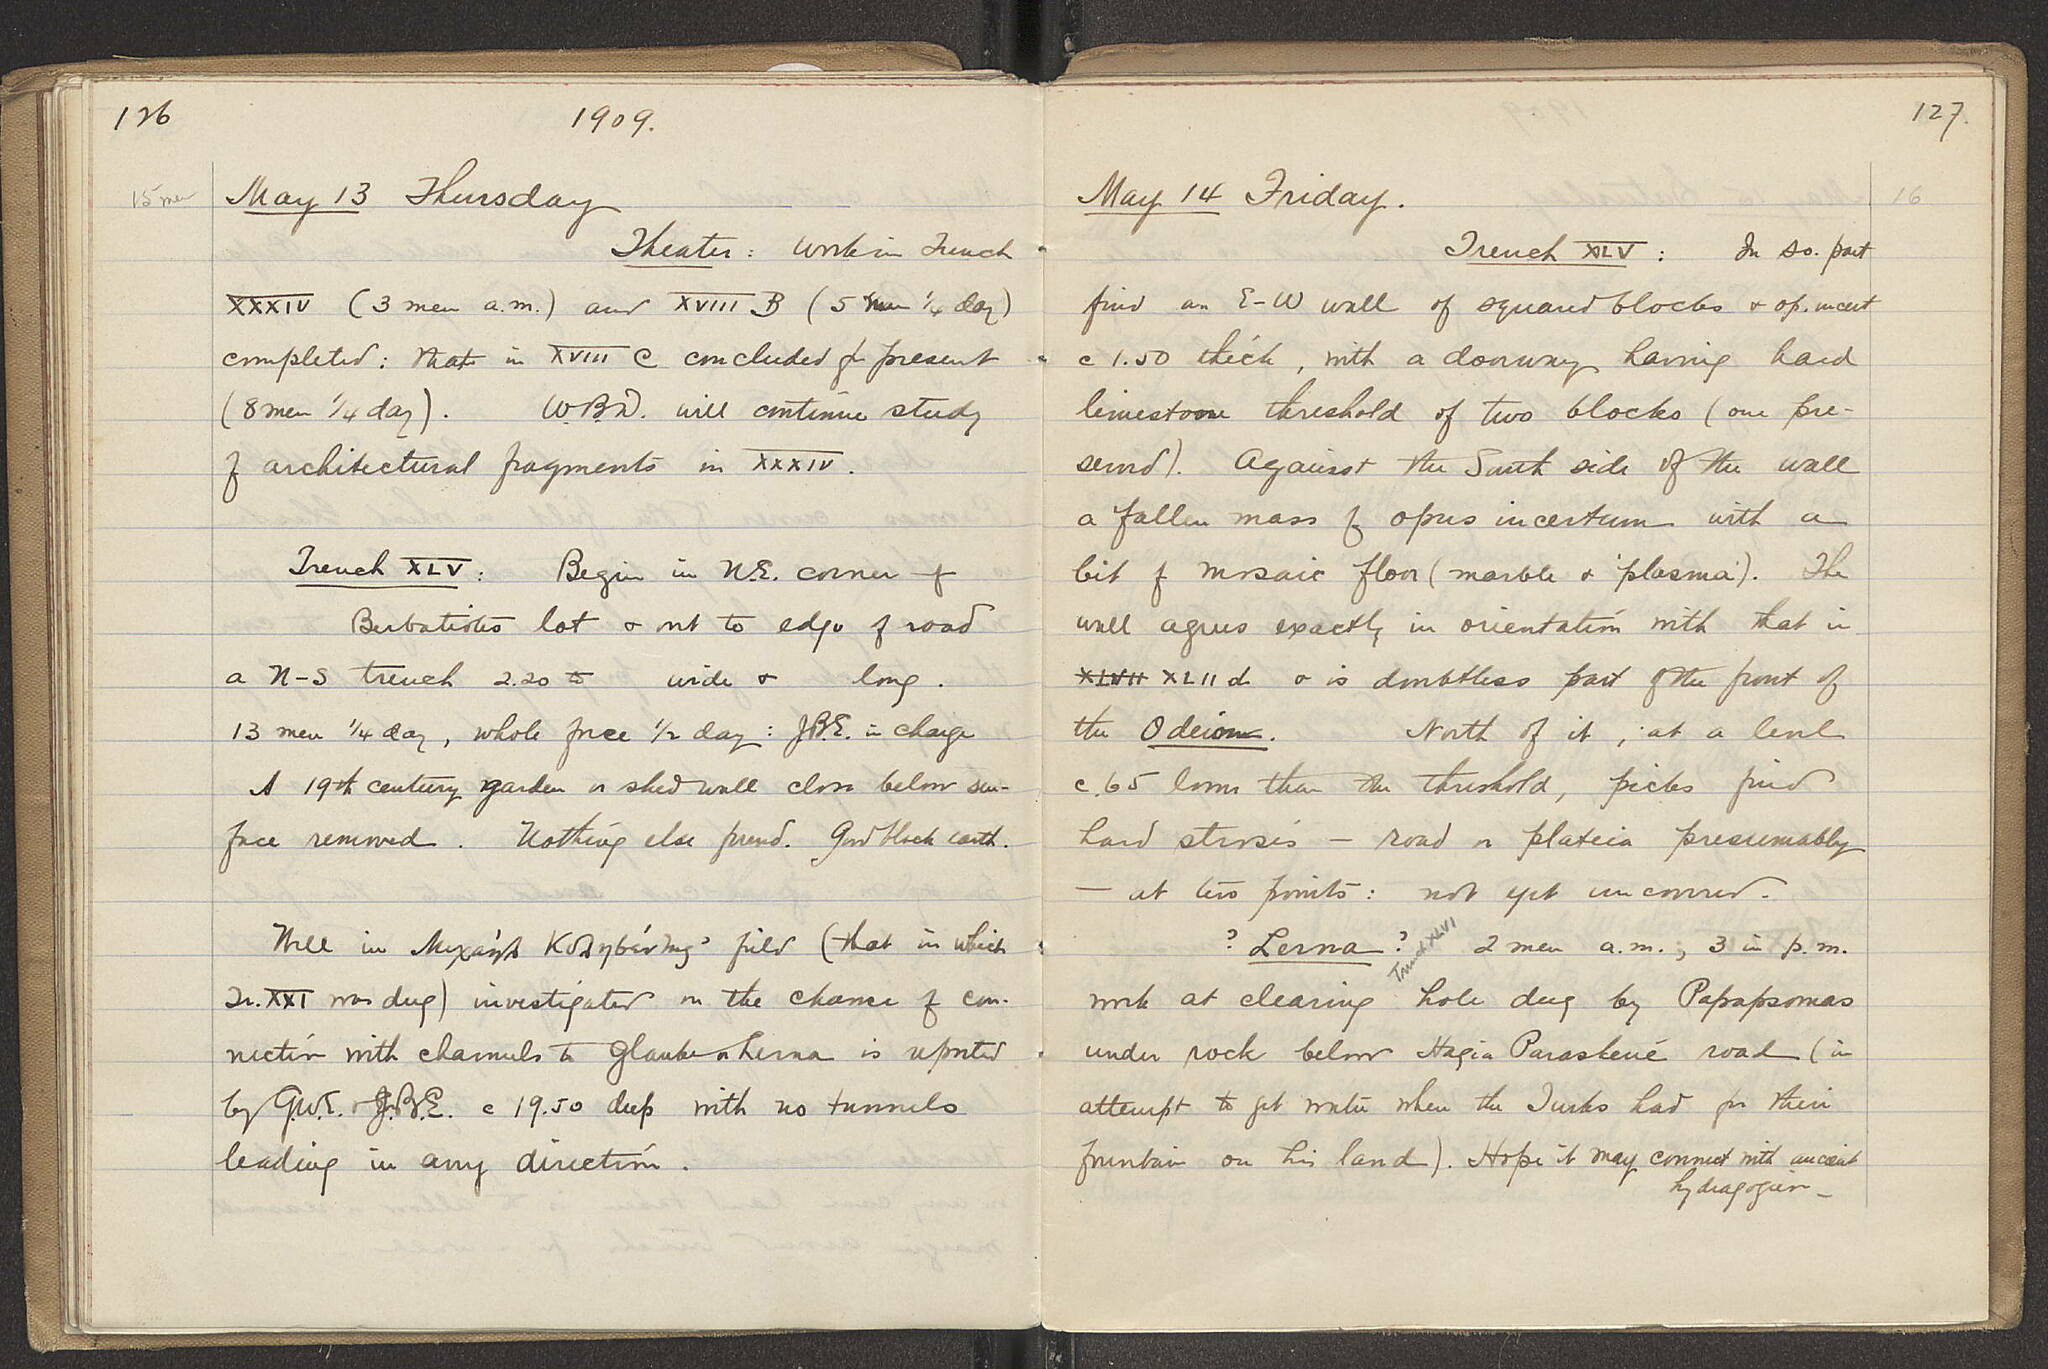 126
1909.
15 men
May 13 Thursday
Theater: Work in Trench
XXXIV (3 men a.m.) and XVIII B (5 men 1/4 day)
completed: that in XVIII C concluded for present
(8 men 1/4 day). W.B.D. will continue study
of architectural fragments in XXXIV.
Trench XLV: Begin in N.E. corner of
lot & out to edge of road
a N-S trench 2.20 wide & long.
13 men 1/4 day, whole force 1/2 day: J.B.E. in charge
A 19th century garden or shed wall close below sur-
face removed. Nothing else found. Good black earth.
Well in field (that in which
Tr. XXI was dug) investigated on the chance of con-
nection with channels to Glauke or Lerna is reported
by G.W.E. & J.B.E. c 19.50 deep with no tunnels
leading in any direction.
127.
16
May 14 Friday.
Trench XLV: In so. part
find an E-W wall of squared blocks & op. incert
c 1.50 thick, with a doorway having hard
limestone threshold of two blocks (one pre-
served). Against the South side of the wall
a fallen mass of opus incertum with a
bit of mosaic floor (marble & 'plasma'). The
wall agrees exactly in orientation with that in
XLVII XLII d & is doubtless part of the front of
the Odeion. North of it, at a level
c .65 lower than the threshold, picks find
hard strosis — road or plateia presumably
— at two points: not yet uncovered.
? Lerna? Trench XLVI 2 men a.m., 3 in p.m.
work at clearing hole dug by Papapsomas
under rock below Hagia Paraskevé road (in
attempt to get water when the Turks had for their
fountain on his land). Hope it may connect with ancient
hydragogion —